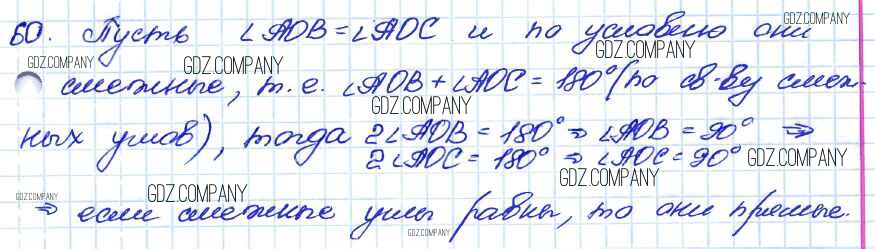 60. Пусть ∠AOB = ∠AOC и по условию они
смежные, т.е. ∠AOB + ∠AOC = 180° (по св-ву смеж-
ных углов), тогда 2∠AOB = 180° ⇒ ∠AOB = 90° ⇒
2∠AOC = 180° ⇒ ∠AOC = 90°
⇒ если смежные углы равны, то они прямые.
GDZ.COMPANY
GDZ.COMPANY
GDZ.COMPANY
GDZ.COMPANY
GDZ.COMPANY
GDZ.COMPANY
GDZ.COMPANY
GDZ.COMPANY
GDZ.COMPANY
GDZ.COMPANY